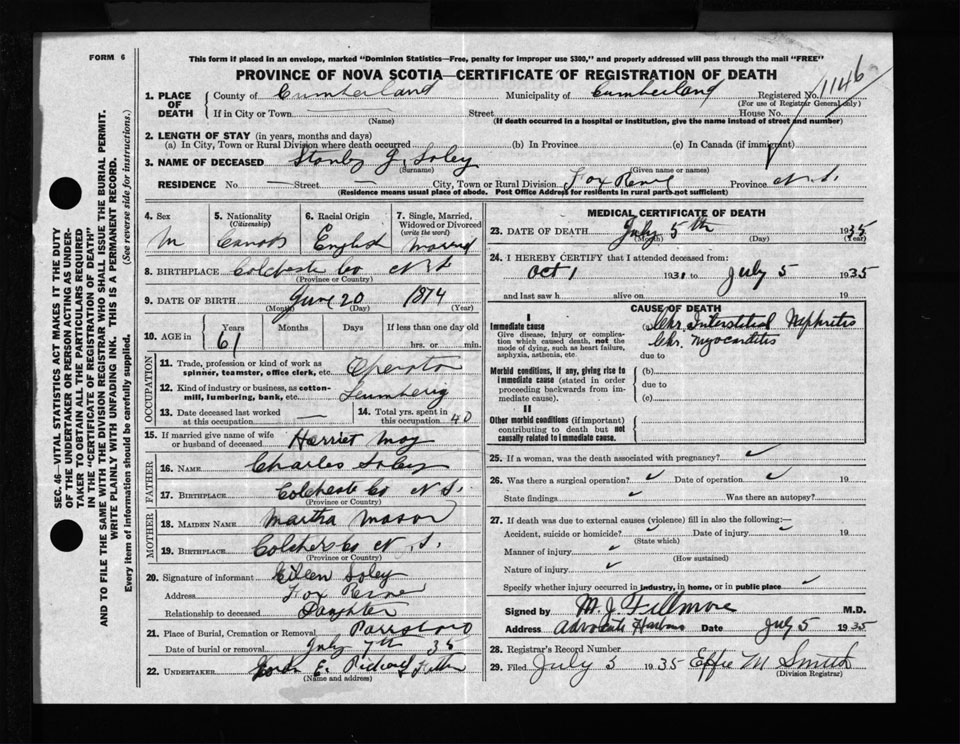 FORM 6
This form if placed in an envelope, marked "Dominion Statistics—Free, penalty for improper use $300," and properly addressed will pass through the mail "FREE"
PROVINCE OF NOVA SCOTIA—CERTIFICATE OF REGISTRATION OF DEATH
1146
1. PLACE OF DEATH
County of Cumberland Municipality of Cumberland Registered No.
(For use of Registrar General only)
If in City or Town Street House No.
(Name) (If death occurred in a hospital or institution, give the name instead of street and number)
2. LENGTH OF STAY (in years, months and days)
(a) In City, Town or Rural Division where death occurred (b) In Province (c) In Canada (if immigrant)
3. NAME OF DECEASED Stanley J. Soley
(Surname) (Given name or names)
RESIDENCE No. Street City, Town or Rural Division Fox River Province N.S.
(Residence means usual place of abode. Post Office Address for residents in rural parts not sufficient)
SEC. 46—VITAL STATISTICS ACT MAKES IT THE DUTY
OF THE UNDERTAKER OR PERSON ACTING AS UNDER-
TAKER TO OBTAIN ALL THE PARTICULARS REQUIRED
IN THE "CERTIFICATE OF REGISTRATION OF DEATH"
AND TO FILE THE SAME WITH THE DIVISION REGISTRAR WHO SHALL ISSUE THE BURIAL PERMIT.
WRITE PLAINLY WITH UNFADING INK. THIS IS A PERMANENT RECORD.
Every item of information should be carefully supplied. (See reverse side for instructions.)
4. Sex M
5. Nationality (Citizenship) Canada
6. Racial Origin English
7. Single, Married, Widowed or Divorced (write the word) Married
8. BIRTHPLACE Colchester Co N S
(Province or Country)
9. DATE OF BIRTH June 20 1874
(Month) (Day) (Year)
10. AGE in Years Months Days If less than one day old
61 hrs. or min.
OCCUPATION
11. Trade, profession or kind of work as spinner, teamster, office clerk, etc. Operator
12. Kind of industry or business, as cotton-mill, lumbering, bank, etc. Lumbering
13. Date deceased last worked at this occupation
14. Total yrs. spent in this occupation 40
15. If married give name of wife or husband of deceased Harriet May
FATHER
16. NAME Charles Soley
17. BIRTHPLACE Colchester Co N.S.
(Province or Country)
MOTHER
18. MAIDEN NAME Martha Mason
19. BIRTHPLACE Colches Co N.S.
(Province or Country)
20. Signature of informant Eileen Soley
Address Fox River
Relationship to deceased Daughter
21. Place of Burial, Cremation or Removal Parrsboro
Date of burial or removal July 7th 35
22. UNDERTAKER E.
(Name and address)
MEDICAL CERTIFICATE OF DEATH
23. DATE OF DEATH July 5th 1935
(Month) (Day) (Year)
24. I HEREBY CERTIFY that I attended deceased from:
Oct 1 1931 to July 5 1935
and last saw h alive on 19
CAUSE OF DEATH
I
Immediate cause
Give disease, injury or complication which caused death, not the mode of dying, such as heart failure, asphyxia, asthenia, etc.
(a) Chr. Interstitial Nephritis
Chr. Myocarditis
due to
Morbid conditions, if any, giving rise to immediate cause (stated in order proceeding backwards from immediate cause).
(b)
due to
(c)
II
Other morbid conditions (if important) contributing to death but not causally related to immediate cause.
25. If a woman, was the death associated with pregnancy?
26. Was there a surgical operation? Date of operation 19
State findings Was there an autopsy?
27. If death was due to external causes (violence) fill in also the following:—
Accident, suicide or homicide? Date of injury 19
(State which)
Manner of injury
(How sustained)
Nature of injury
Specify whether injury occurred in industry, in home, or in public place
Signed by M. J. Fillmore M.D.
Address Advocate Harbour Date July 5 1935
28. Registrar's Record Number
29. Filed July 5 1935 Effie M Smith
(Division Registrar)